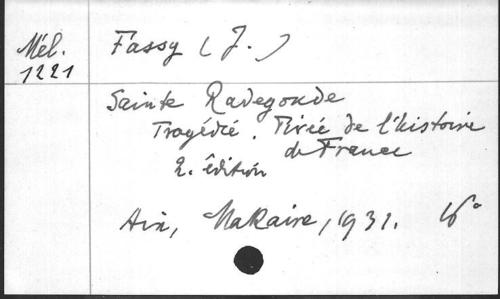 Mél.
1221
Fassy (J.)
Sainte Radegonde
Tragédie. Tirée de l'histoire
de France
2. édition
Aix, Makaire, 1931. 16°